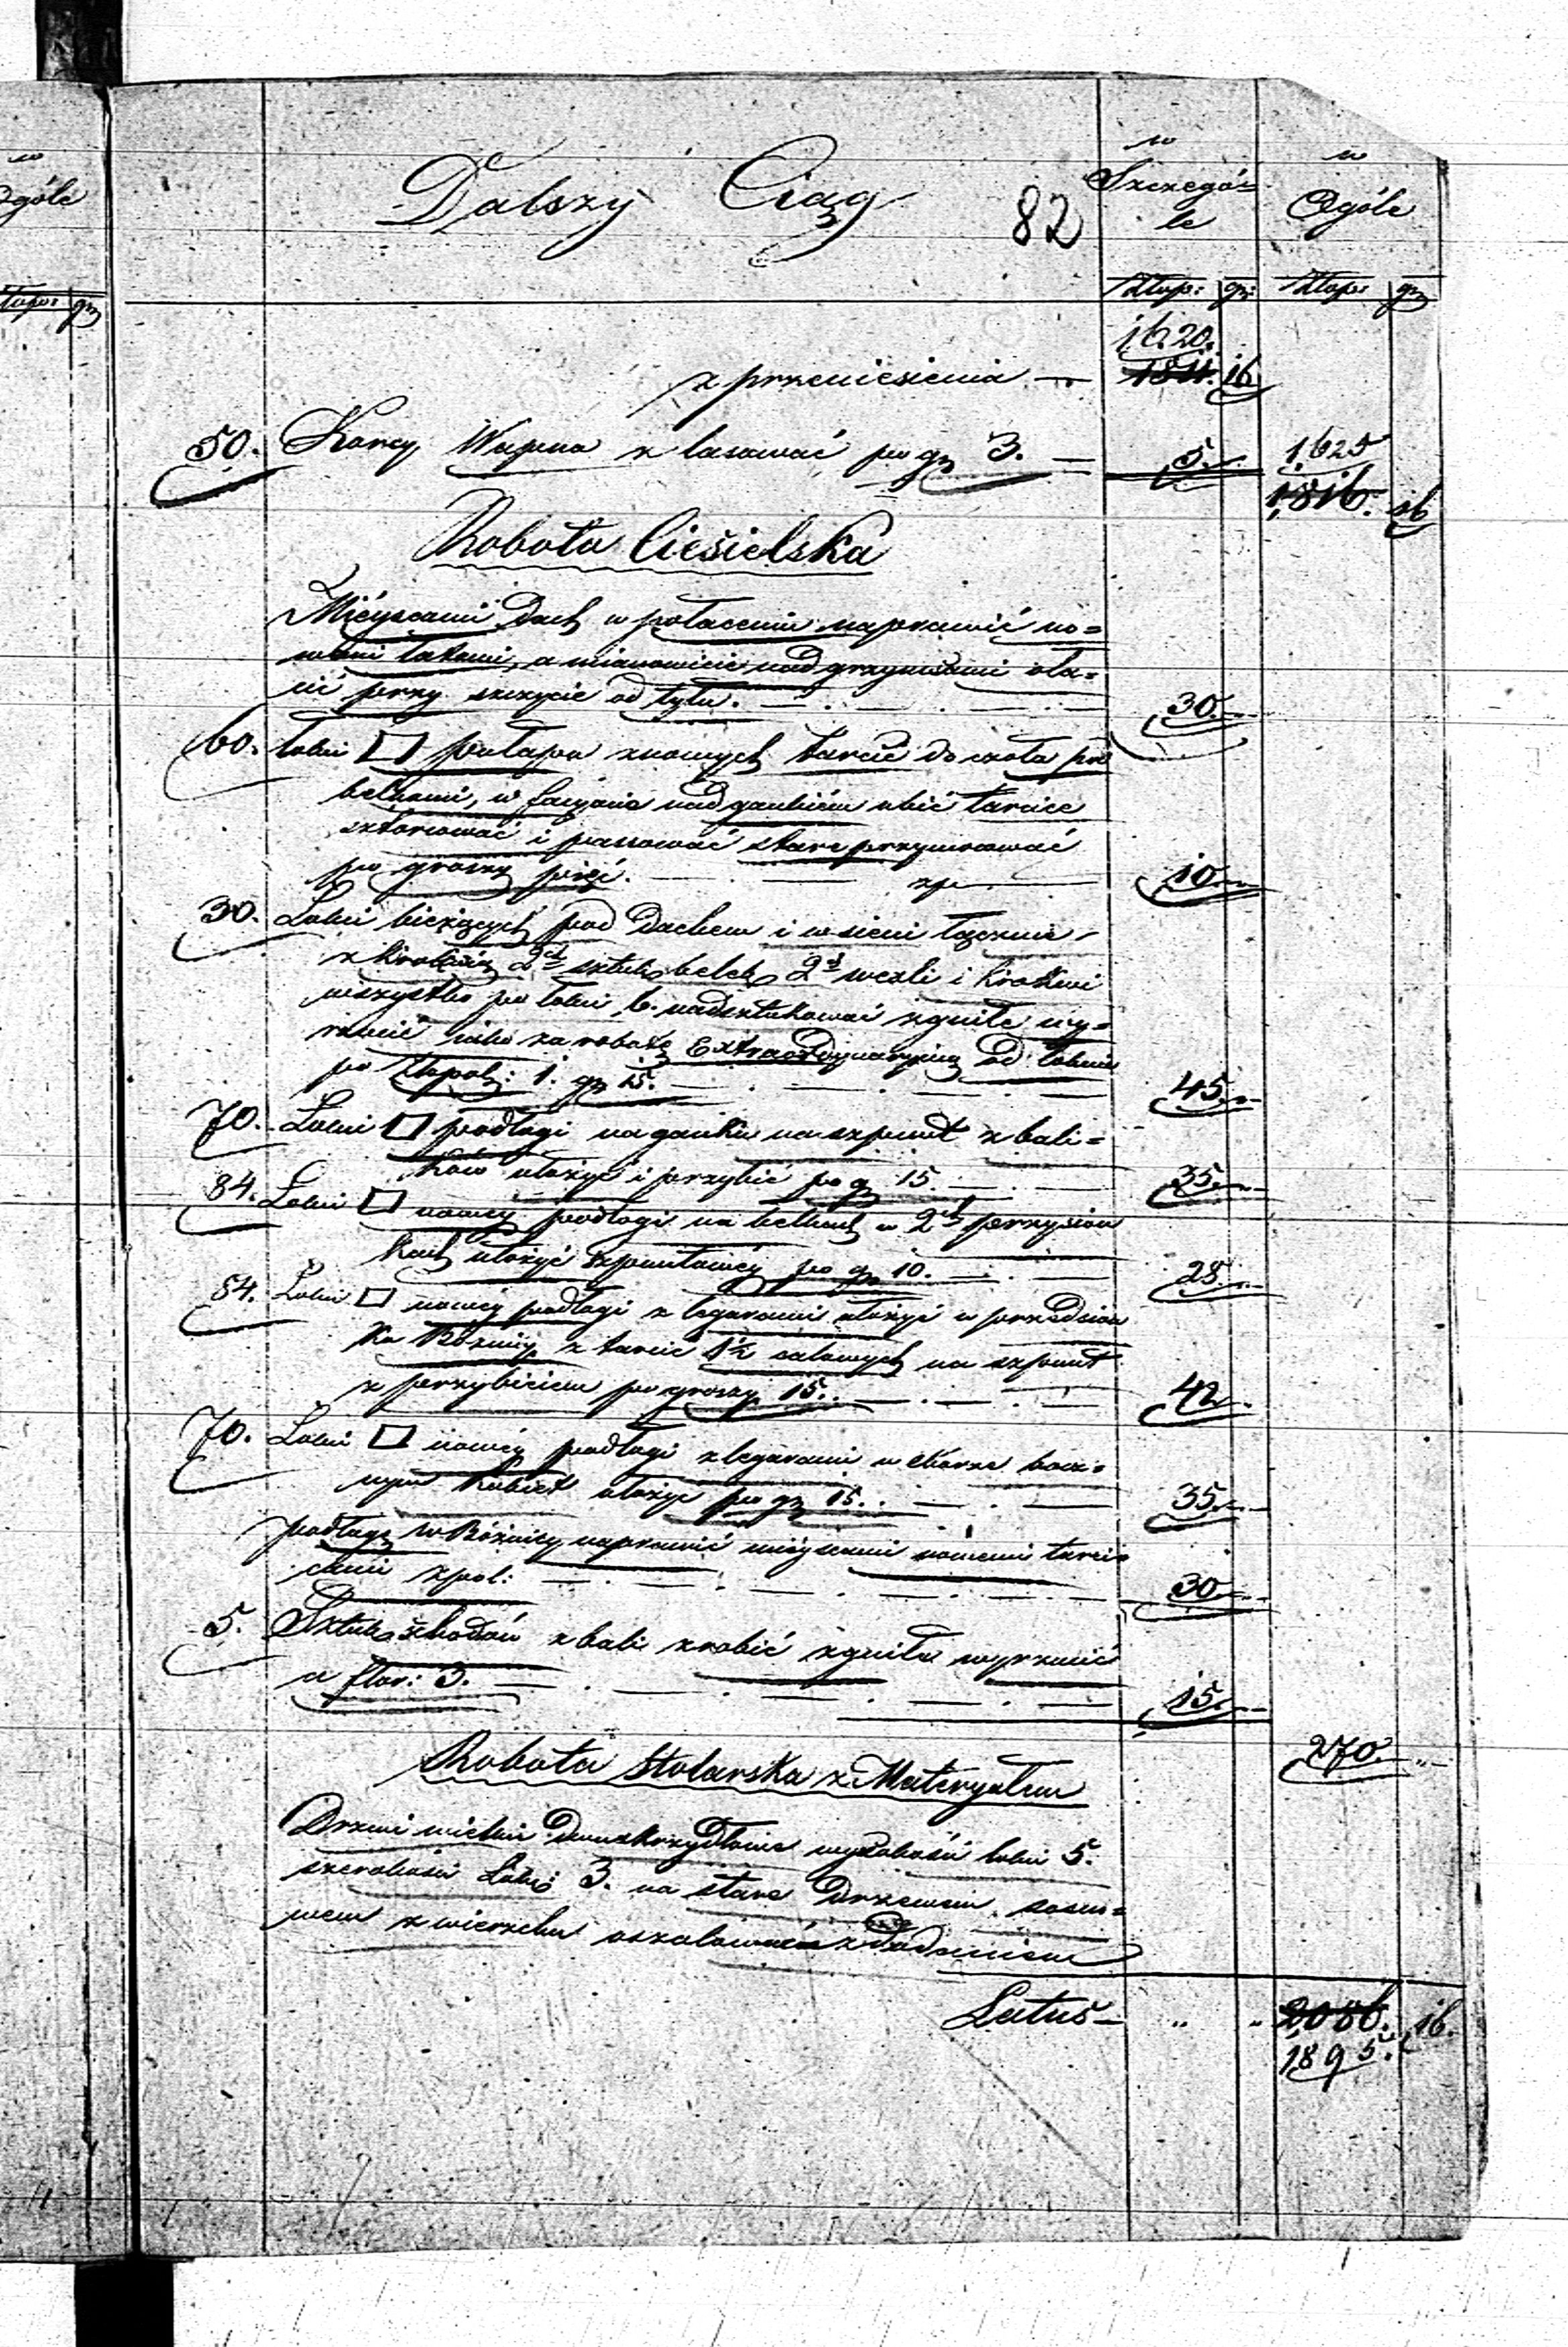 w
Ogóle
Złop: gr
Dalszy Ciąg
82
w
Szczegó=
le
w
Ogóle
Złop: gr:
Złop: gr
1620.
z przeniesienia — 1811. 16
50. Korcy Wapna z lasować po gr 3. — 5.
1625
1816. 16
Robota Ciesielska
Mieyscami Dach w połaceniu naprawić no=
wemi łatami, a mianowicie nad grzymsami
przy szczycie od tyłu. 30.
60. Łokci □ z nowych tarcic do czoła
belkami, w nad gankiem ubić tarcice
i passować stare
po groszy pięć. zp 10
30. Łokci bieżących pod Dachem i w sieni łącznie
z 2ch sztuk belek, 2ch i krokwi
wszystko po łokci 6. nadsztukować zgniłe wy=
rzucić iako za robotę Extraordynaryiną od łokcia
po Złopol: 1. gr 15. 45.
70. Łokci □ podłogi na ganku na szpunt z bali=
ków ułożyć i przybić po gr 15. 35
84. Łokci □ nowey podłogi na belkach w 2ch przysion
kach ułożyć szpuntowey po gr 10. 28.
84. Łokci □ nowey podłogi z legarami ułożyć w przedsion
ku Bóżnicy z tarcic 1½ calowych na szpunt
z przybiciem po groszy 15. 42.
70. Łokci □ nowey podłogi z legarami w
Kobiet ułożyć po gr 15. 35
podłogę w Bóżnicy naprawić mieyscami nowemi tarci=
cami zpol: 30
5. Sztuk schodów z bali zrobić zgniłe wyrzucić
a flor: 3. 15.
270.
Robota Stolarska z Materyałem
Drzwi wielkie Dwuskrzydłowe wysokości łokci 5.
szerokości Łokci 3. na stare Drzewem sosno=
wem z wierzchu oszalować z Dodaniem
Latus — " " 2086. 16.
1895.